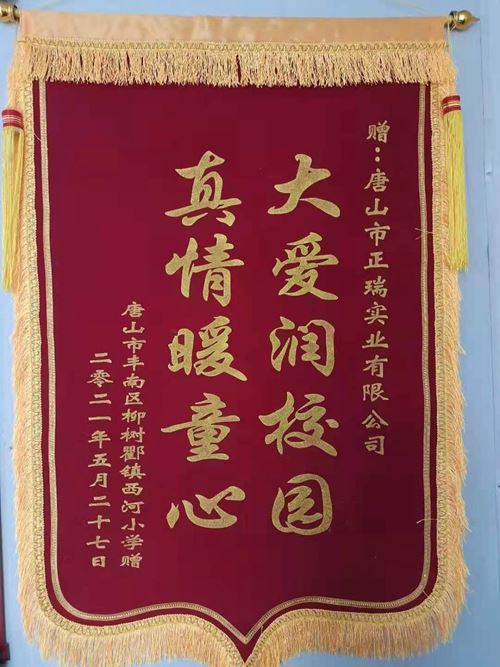 赠：唐山市正瑞实业有限公司
大爱润校园
真情暖童心
唐山市丰南区柳树酄镇西河小学赠
二零二一年五月二十七日